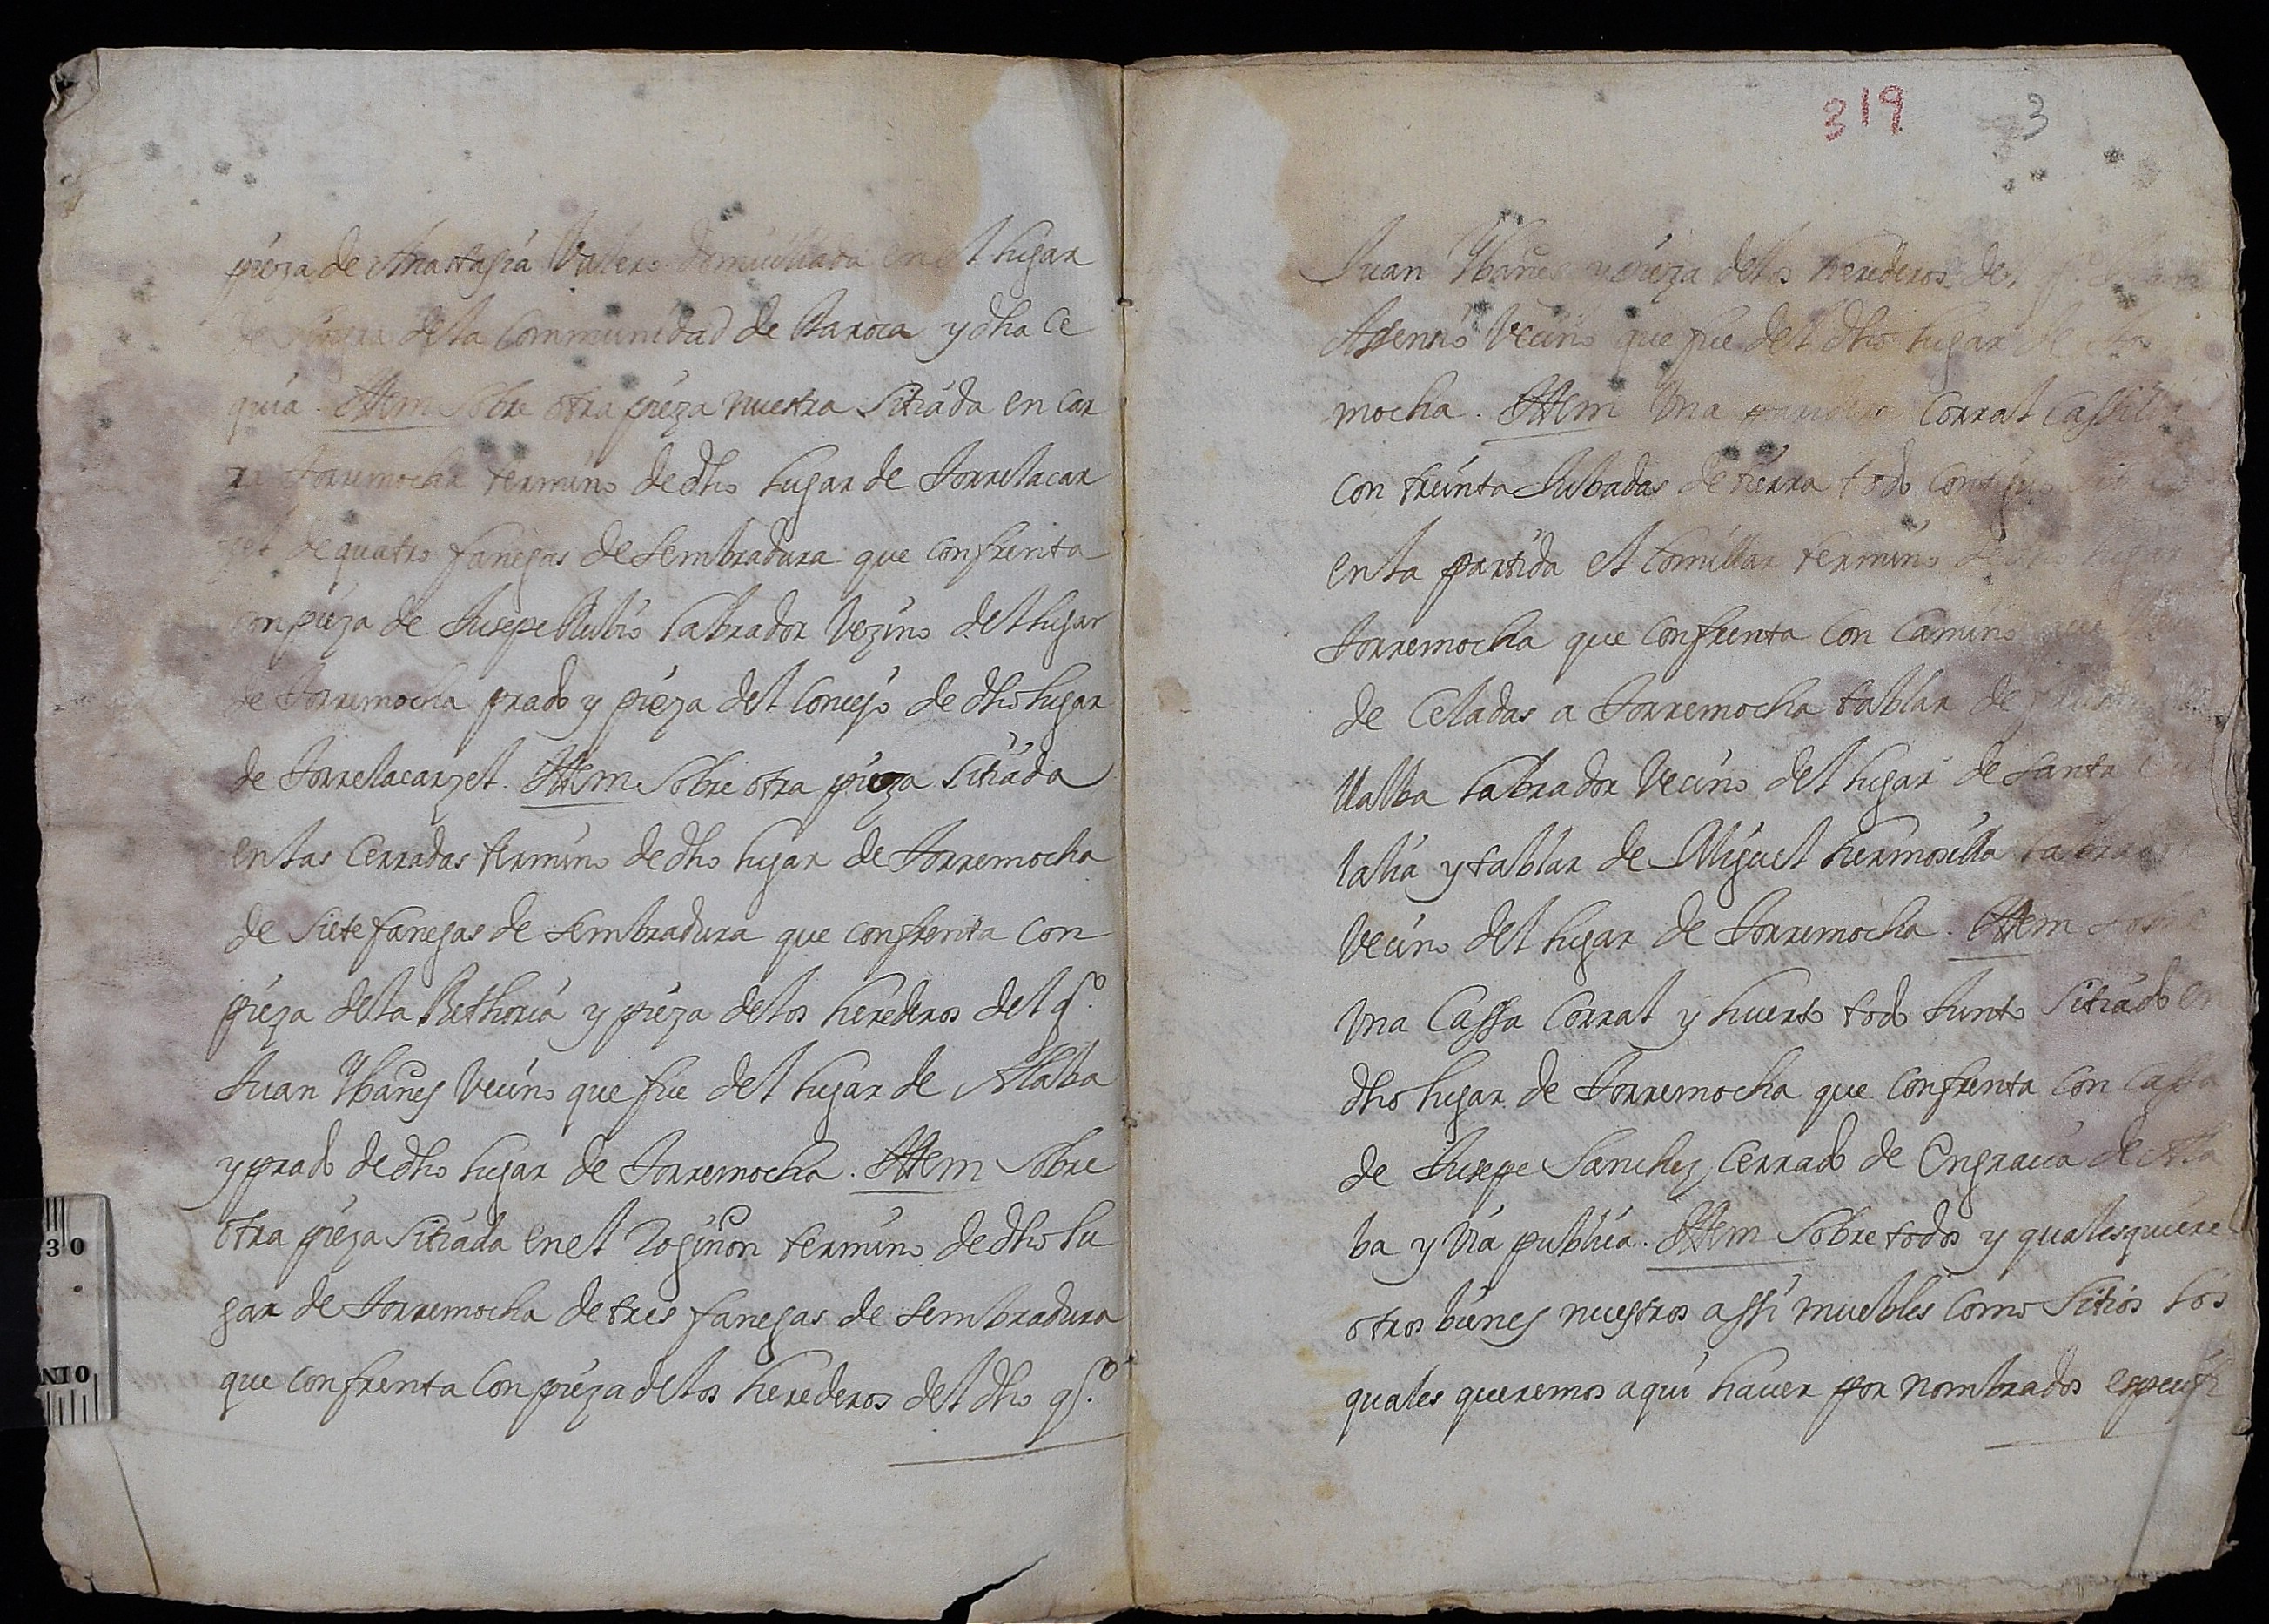 pieza de Anastasia Valero domiciliada en el lugar
de la Communidad de Daroca y dha ce
quia. Ittem sobre otra pieza nuestra sitiada en car
ra Torremocha termino de dho lugar de Torrelacar
zel de quatro fanegas de sembradura que confrenta
con pieza de Jusepe Rubio labrador vezino del lugar
de Torremocha prado y pieza del Concejo de dho lugar
de Torrelacarzel. Ittem sobre otra pieza sitiada
en las Cerradas termino de dho lugar de Torremocha
de siete fanegas de sembradura que confrenta con
pieza de la Rethoria y pieza de los herederos del qº.
Juan Ybañez vecino que fue del lugar de Alalba
y prado de dho lugar de Torremocha. Ittem sobre
otra pieza sitiada en el Zogiñon termino de dho lu
gar de Torremocha de tres fanegas de sembradura
que confrenta con pieza de los herederos del dho qº.
319 3
Juan Ybañez y pieza de los herederos de
Assensio vecino que fue del dho lugar de
mocha. Ittem una corral
con treinta Jubadas de tierra todo contiguo
en la partida el tomillar termino de dho lugar
Torremocha que confrenta con camino que
de Celadas a Torremocha tablar de
Ualba labrador vecino del lugar de Santa
lalia y tablar de Miguel hermosilla labrador
vecino del lugar de Torremocha. Ittem sobre
una Cassa corral y huerto todo Junto sitiado en
dho lugar de Torremocha que confrenta con cassa
de Jusepe Sanchez, cerrado de Engracia de Ala
ba y via publica. Ittem sobre todos y qualesquiere
otros bienes nuestros assi muebles como sitios los
quales queremos aqui hauer por nombrados especifi